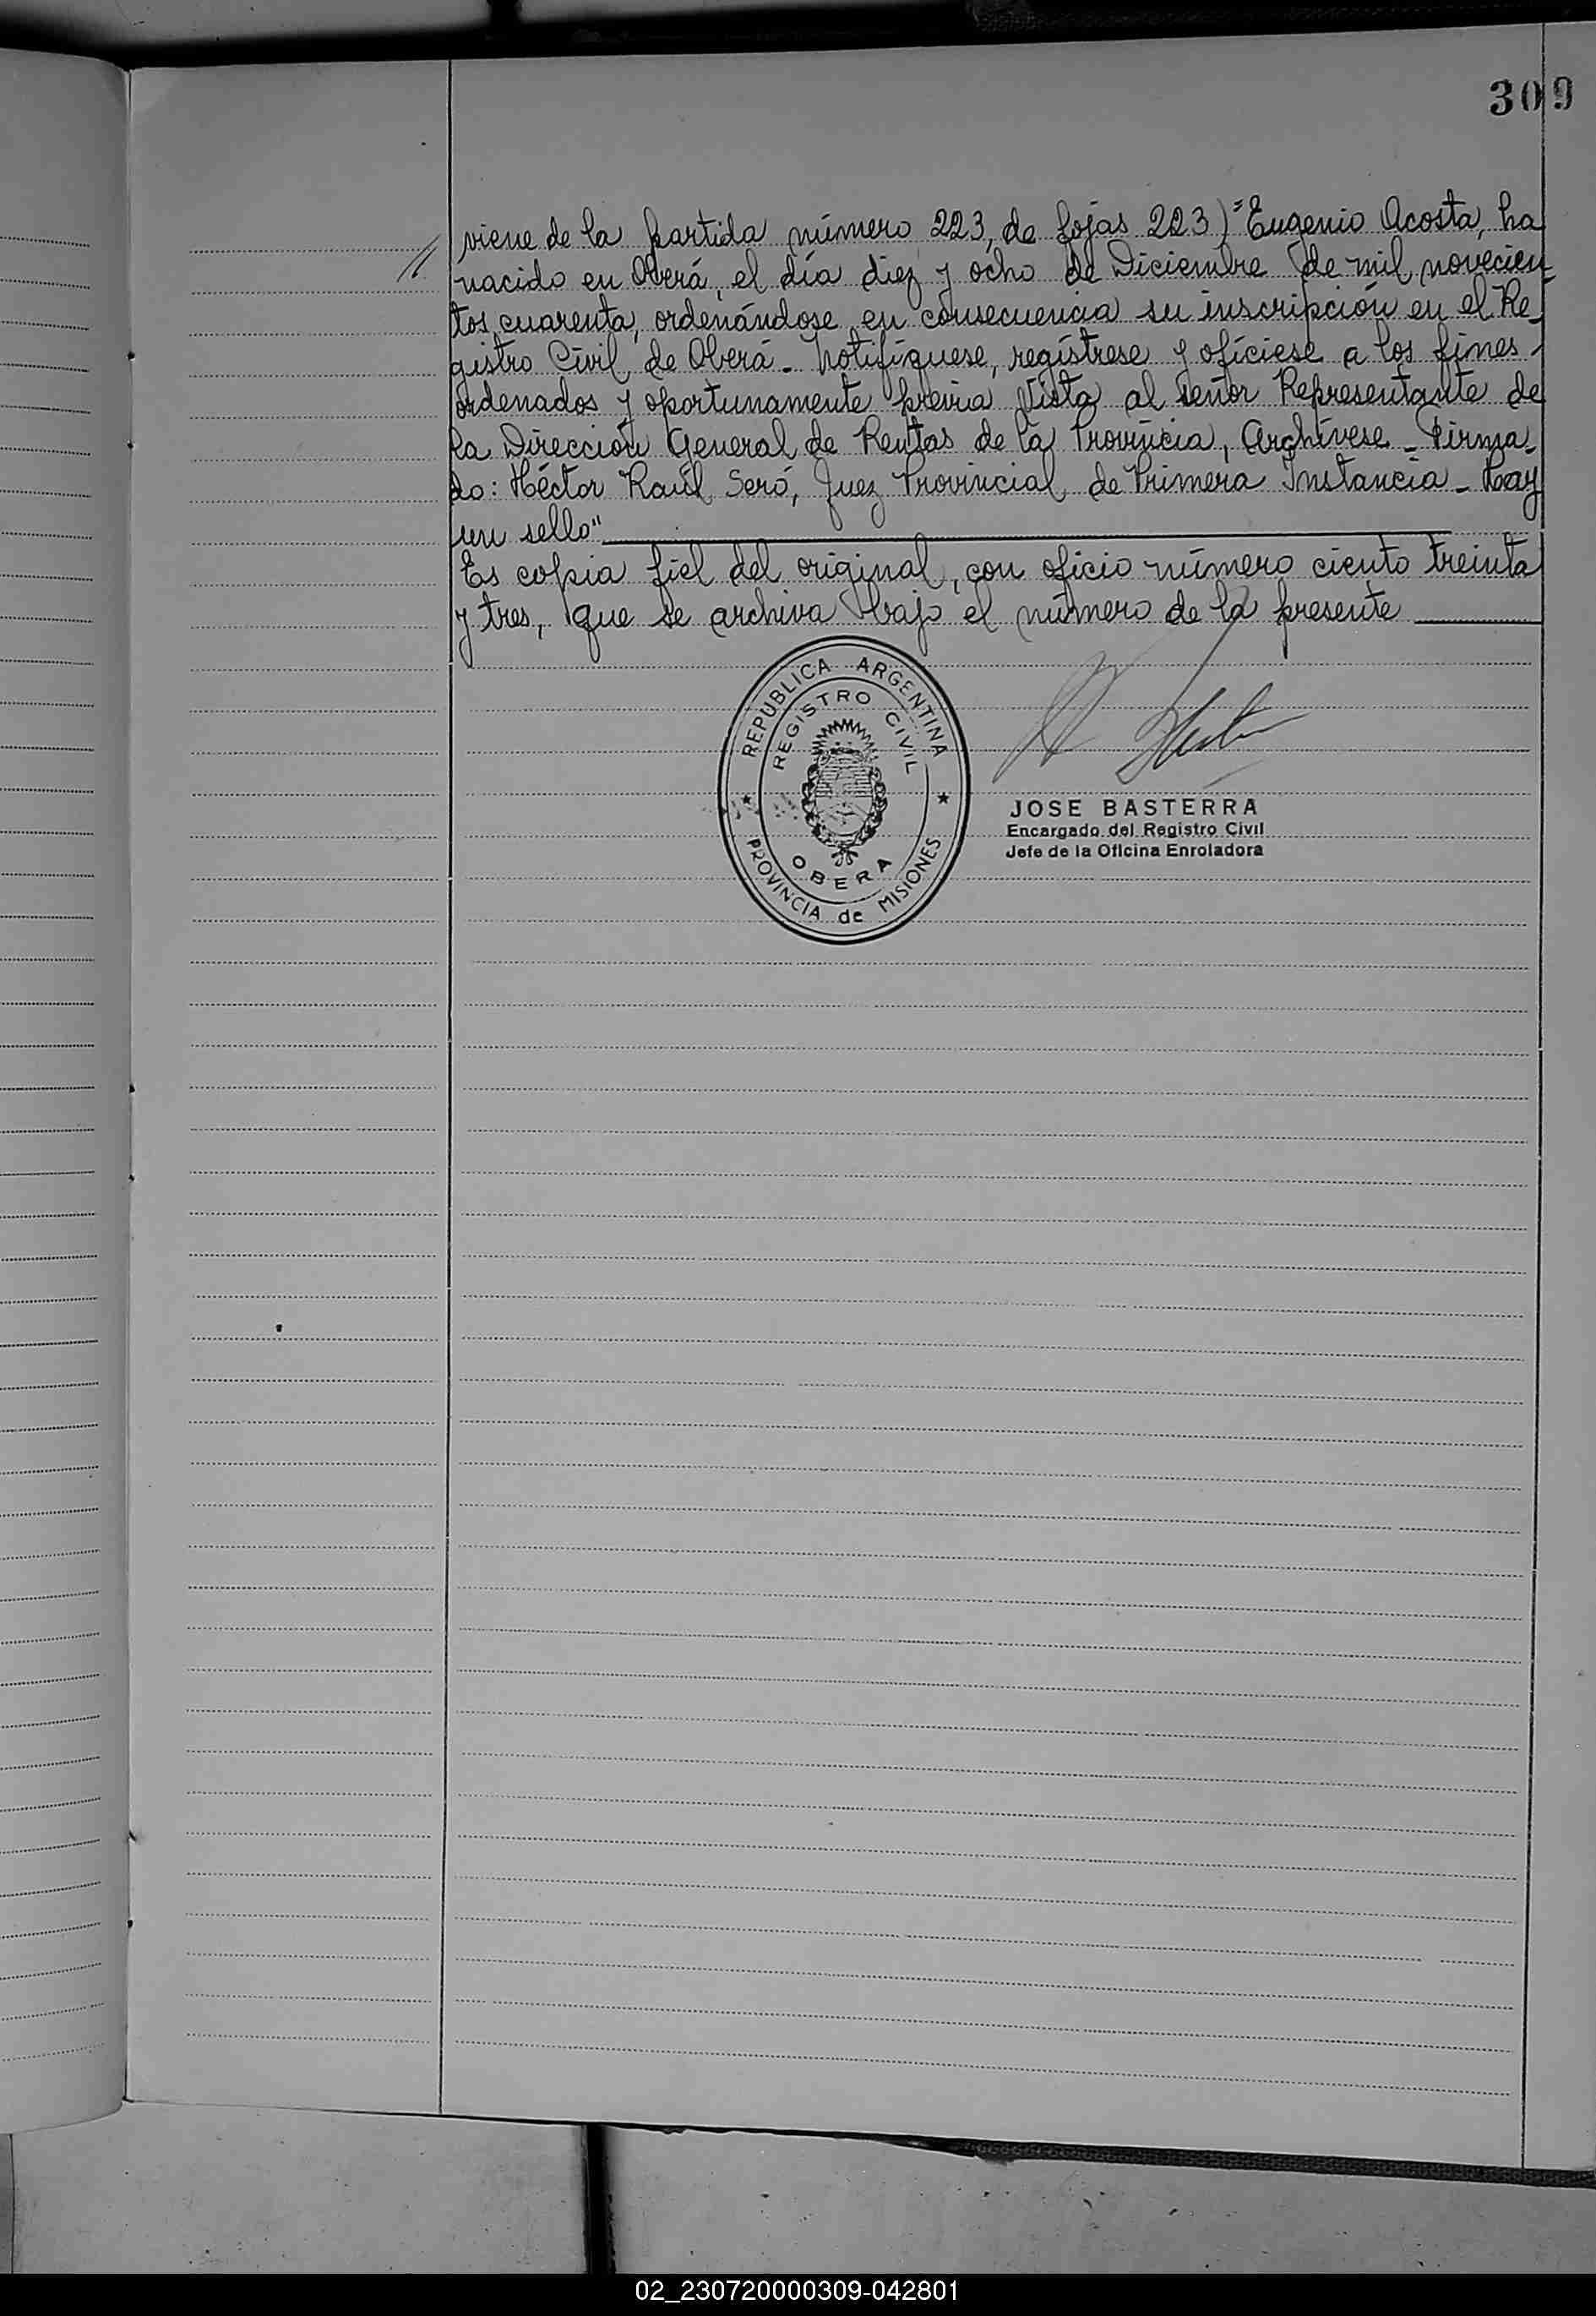 309
viene de la partida número 223, de fojas 223) "Eugenio Acosta, ha
nacido en Oberá, el día diez y ocho de Diciembre de mil novecien-
tos cuarenta, ordenándose en consecuencia su inscripción en el Re-
gistro Civil de Oberá - Notifíquese, regístrese y ofíciese a los fines
ordenados y oportunamente previa vista al señor Representante de
la Dirección General de Rentas de la Provincia, Archívese - Firma-
do: Héctor Raúl Seró, Juez Provincial de Primera Instancia - Hay
un sello"
Es copia fiel del original, con oficio número ciento treinta
y tres, que se archiva bajo el número de la presente
REPUBLICA ARGENTINA
REGISTRO CIVIL
OBERA
PROVINCIA de MISIONES
JOSE BASTERRA
Encargado del Registro Civil
Jefe de la Oficina Enroladora
02_230720000309-042801